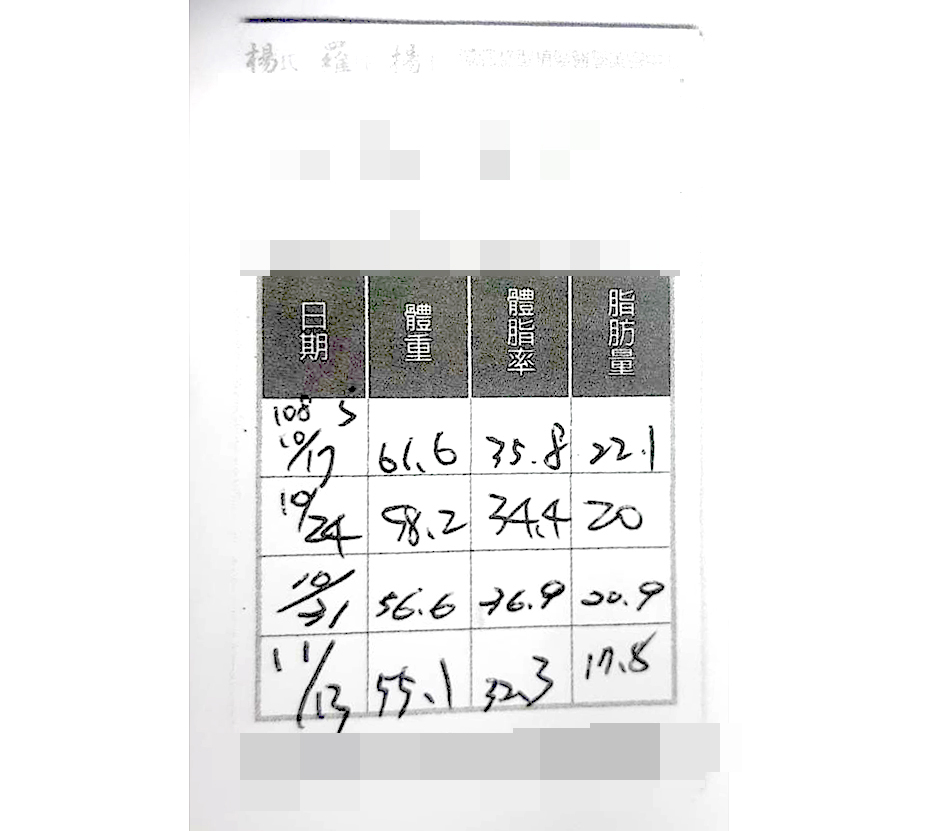 楊氏 羅 揚
日期 體重 體脂率 脂肪量
108 5
10/17 61.6 35.8 22.1
10/24 58.2 34.4 20
10/31 56.6 36.9 20.9
11/13 55.1 32.3 17.8